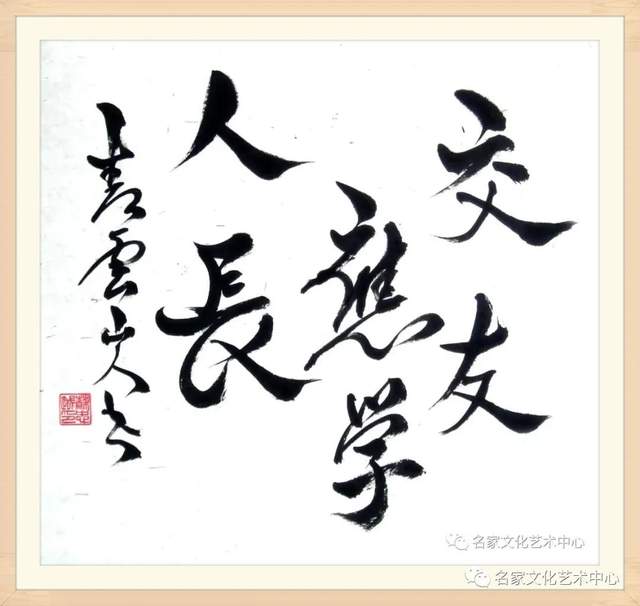 交友
應学
人長
青雲山人书
名家文化艺术中心
名家文化艺术中心